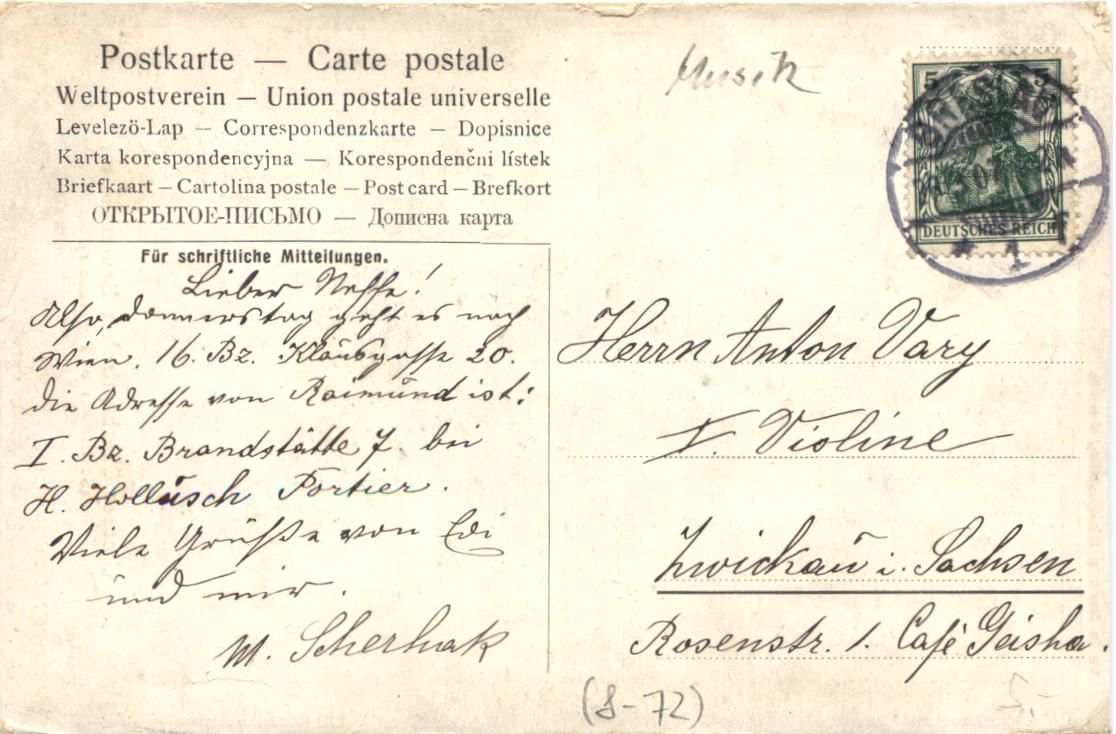 Postkarte — Carte postale
Weltpostverein — Union postale universelle
Levelezö-Lap — Correspondenzkarte — Dopisnice
Karta korespondencyjna — Korespondenčni lístek
Briefkaart — Cartolina postale — Post card — Brefkort
ОТКРЫТОЕ-ПИСЬМО — Дописна карта
Für schriftliche Mitteilungen.
Lieber Neffe!
Also, donnerstag geht es nach
Wien. 16. Bz. Klausgasse 20.
die Adresse von Raimund ist:
I. Bz. Brandstätte 7 bei
H. Hollusch Portier.
Viele Grüße von Edi
und mir.
M. Scherhak
Musik
5 5
DEUTSCHES REICH
BRESLAU
1
Herrn Anton Vary
I. Violine
Zwickau i. Sachsen
Rosenstr. 1. Café Geisha.
(8-72)
5.-